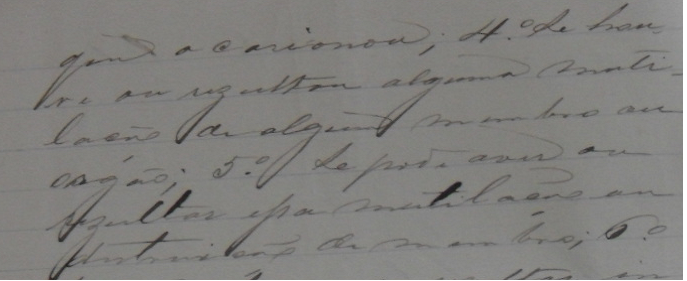 que o casionou; 4.º Se hou-
ve ou rezultou alguma muti-
lação de algum membro ou
orgão; 5.º Se pode aver ou
rezultar essa mutilação ou
distruição de membro; 6.º